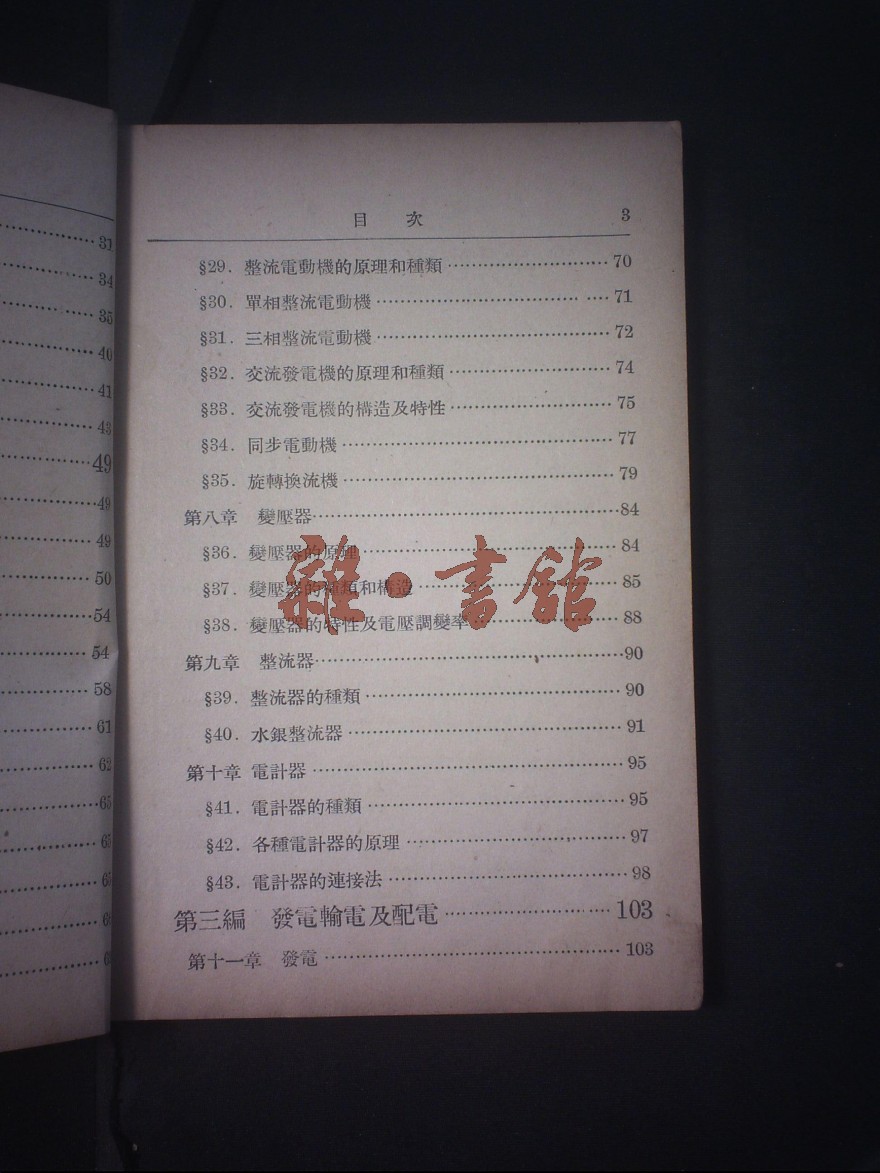 31
34
35
40
41
43
49
49
49
50
54
54
58
61
62
65
目 次 3
§29. 整流電動機的原理和種類 70
§30. 單相整流電動機 71
§31. 三相整流電動機 72
§32. 交流發電機的原理和種類 74
§33. 交流發電機的構造及特性 75
§34. 同步電動機 77
§35. 旋轉換流機 79
第八章 變壓器 84
§36. 變壓器的原理 84
§37. 變壓器的種類和構造 85
§38. 變壓器的特性及電壓調變率 88
第九章 整流器 90
§39. 整流器的種類 90
§40. 水銀整流器 91
第十章 電計器 95
§41. 電計器的種類 95
§42. 各種電計器的原理 97
§43. 電計器的連接法 98
第三編 發電輸電及配電 103
第十一章 發電 103
雜·書館